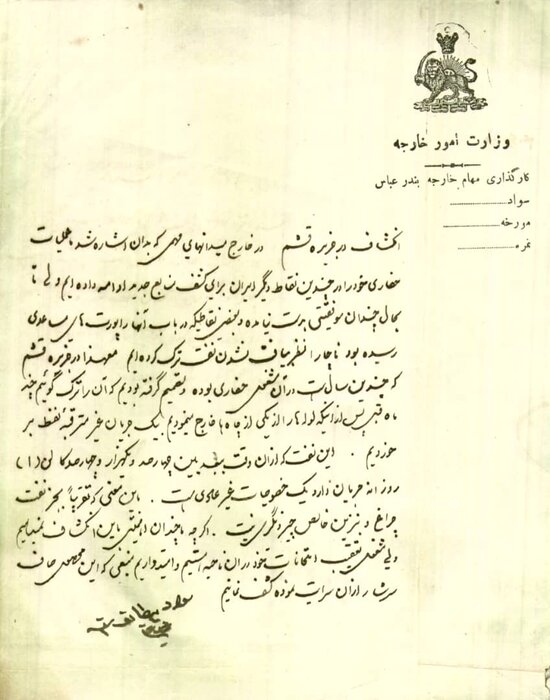 وزارت امور خارجه
کارگذاری مهام خارجه بندر عباس
سواد
مورخه
نمره
اکتشاف در جزیره قشم در خارج میدانهای مهمی که بدان اشاره شد عملیات
حفاری خود را در چندین نقاط دیگر ایران برای کشف منابع جدید ادامه داده ایم ولی تا
بحال چندان موفقیتی بدست نیامده و بعضی نقاطیکه در باب آنها راپورت های مساعدی
رسیده بود ناچار بیافت نشدن نفت ترک کرده ایم معهذا در جزیره قشم
که چندین سال است در آن مشغول حفاری بوده و تصمیم گرفته بودیم که آن را ترک گوئیم چند
ماه قبل پس از اینکه لوله ها را از یکی از چاه ها خارج مینمودیم بیک جریان غیر مترقبه نفط بر
خوردیم . این نفت که از آن وقت ببعد بین چهارصد و یکهزار و چهارصد گالن (۱)
روزانه جریان دارد یک خصوصیات غیر عادی است . باین معنی که تقریباً بجز نفت
چراغ و بنزین خالص چیز دیگری نیست . اگرچه ما چندان اهمیتی باین اکتشاف نمیدهیم
ولی مشغول تعقیب امتحانات خود در آن ناحیه هستیم و امیدواریم منبعی که این محصول صاف
سرشار از آن سرایت نموده کشف نمائیم
سواد مطابق است